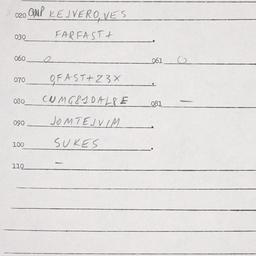 020 QNP KEJVERO,VES
030 FARFAST+.
060 0 061 0
070 QFAST+Z3X.
080 CUMG81DALPE 081 -
090 JOMTEJVIM.
100 SUKES.
110 -